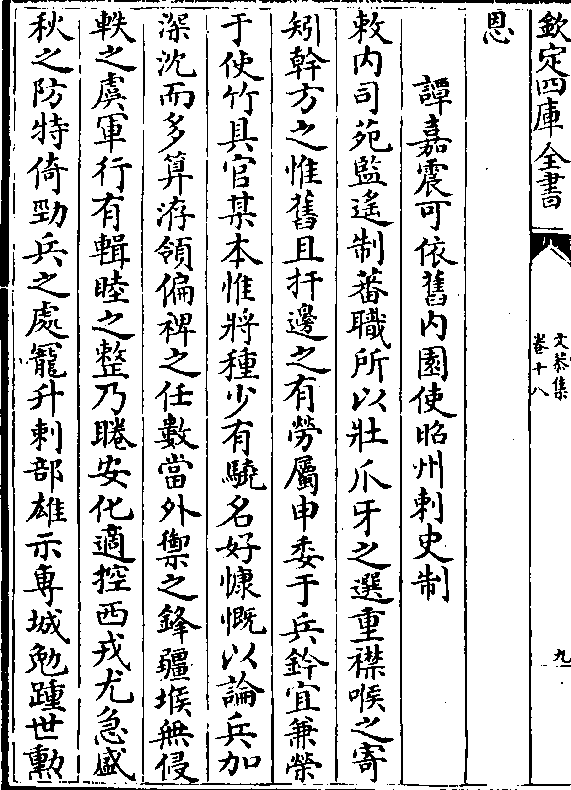 欽定四庫全書
文恭集
卷十八
九
恩
譚嘉震可依舊内園使昭州刺史制
敕内司苑監遙制蕃職所以壯爪牙之選重襟喉之寄
矧幹方之惟舊且扞邊之有勞屬申委于兵鈐宜兼榮
于使竹具官某本惟將種少有驍名好慷慨以論兵加
深沈而多算洊領偏裨之任數當外禦之鋒疆堠無侵
軼之虞軍行有輯睦之整乃睠安化適控西戎尤急盛
秋之防特倚勁兵之處寵升刺部雄示専城勉踵世勲